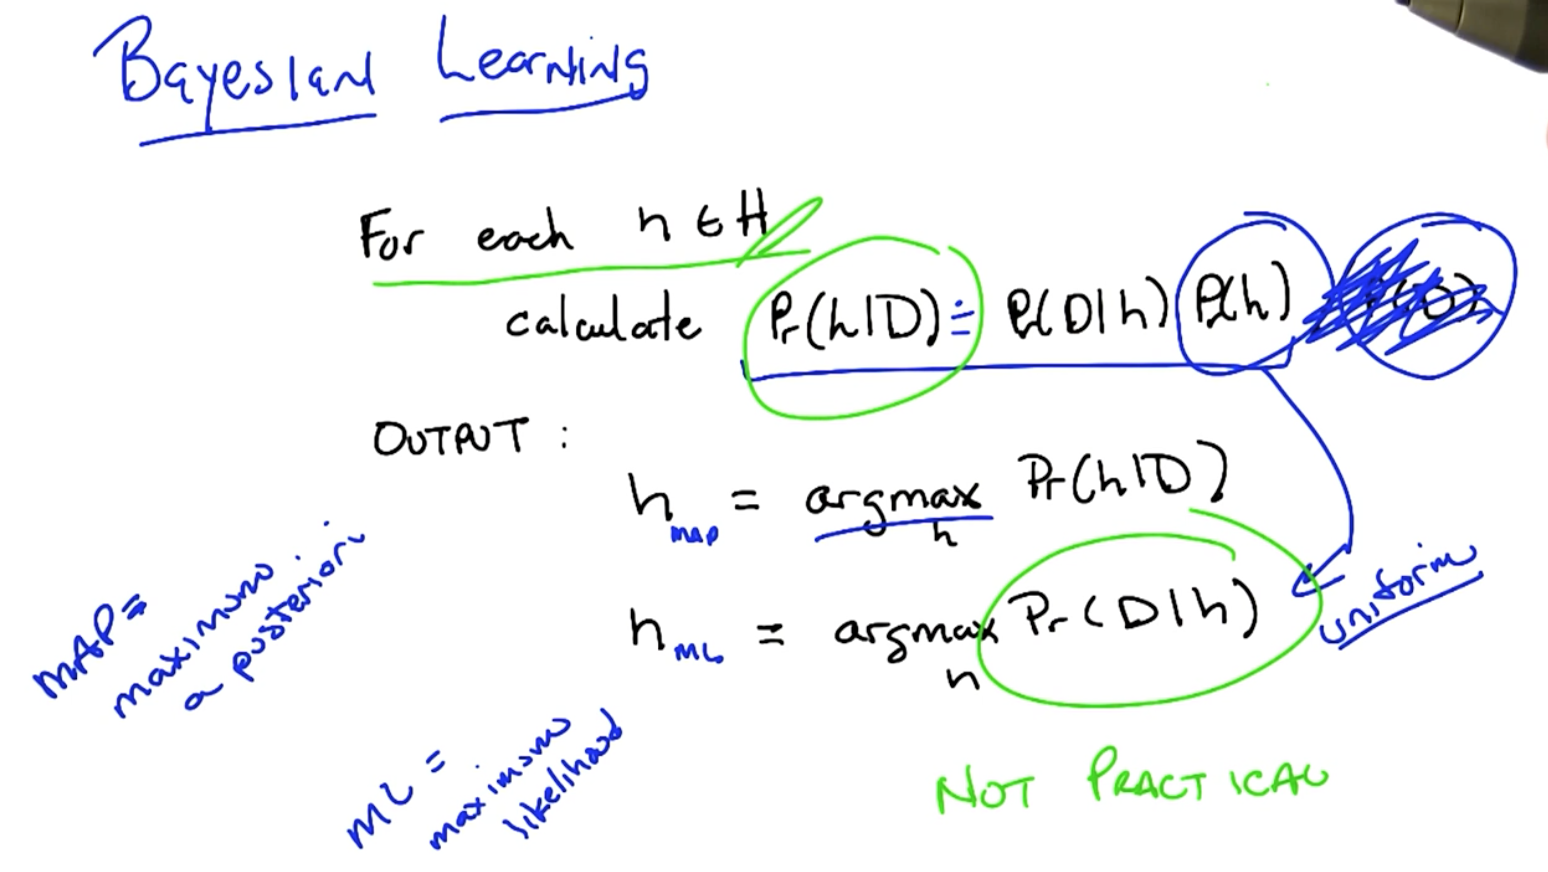 Bayesian Learning
For each h ∈ H
calculate Pr(h|D) ≐ Pr(D|h) Pr(h)
OUTPUT :
h MAP = argmax h Pr(h|D)
h ML = argmax h Pr(D|h)
uniform
MAP =
maximum
a posteriori
ML =
maximum
likelihood
NOT PRACTICAL